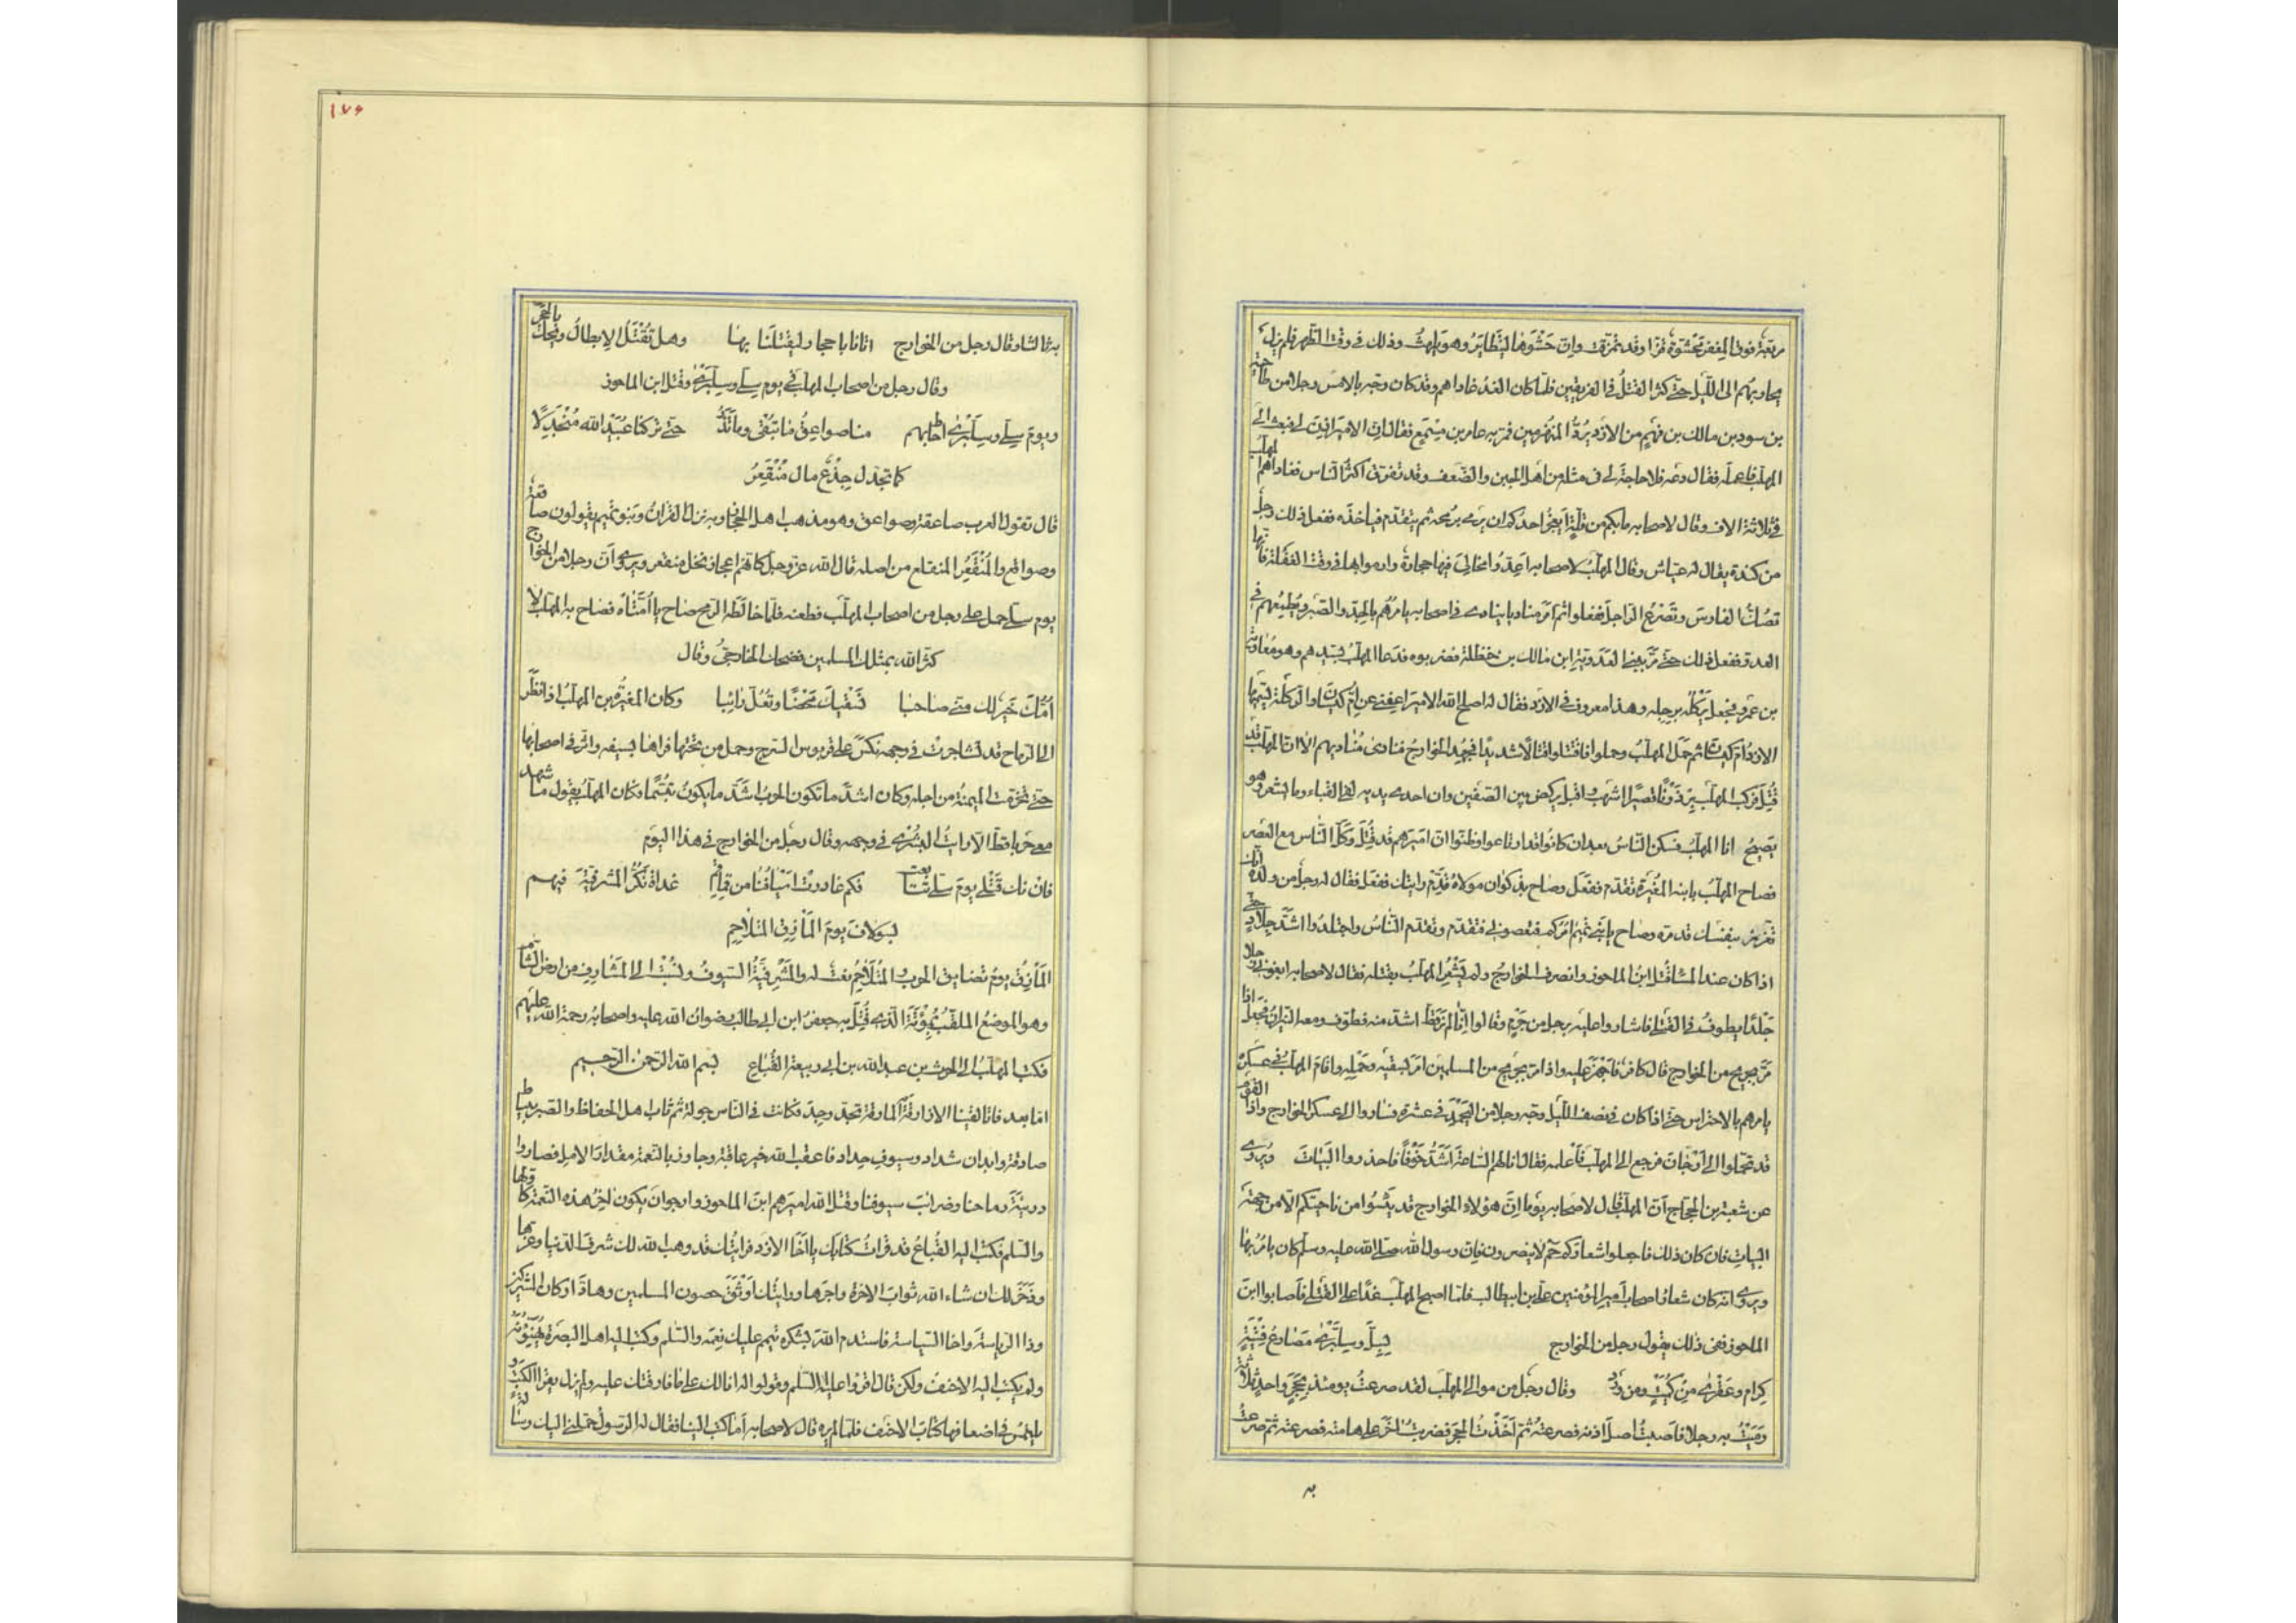 مربّعة فوق المغفر محشوّة قزّا وقد تمزقت وانّ حشوها ليتطاير وهو يلهث وذلك في وقت الظهر فلم يزل
يحاربهم الى اللّيل حتّى كثر القتل في الفريقين فلمّا كان الغد غاداهم وقد كان وجّه بالامس رجلا من طاحية
بن سود بن مالك بن فهم من الازد يردّ المنهزمين فمرّ به عامر بن مسمع فقال انّ الامير اذن لي فبعث الى
المهلّب فاعلمه فقال دعه فلا حاجة لي في مثله من اهل الجبن والضّعف وقد تفرق اكثر النّاس فغاداهم المهلب
في ثلاثة الاف وقال لاصحابه ما بكم من قلّة أيعجز احدكم ان يرمي برمحه ثم يتقدّم فيأخذه ففعل ذلك رجل
من كندة يقال له عيّاش وقال المهلّب لاصحابه اعدّوا مخالي فيها حجارة وارموا بها في وقت الغفلة فانّها
تصدّ الفارس وتصرع الرّاجل ففعلوا ثم امر مناديا ينادي في اصحابه يامرهم بالجدّ والصّبر ويطمعهم في
العدو ففعل ذلك حتى مرّ ببني العدويّة ابن مالك بن حنظلة فضربوه فدعا المهلّب بسيدهم وهو معاوية
بن عمرو فجعل يركله برجله وهذا معروف في الازد فقال له اصلح الله الامير اعفني عن امّ كيسان والركلة تسمّيها
الازد امّ كيسان ثم حمل المهلّب وحملوا فاقتتلوا قتالا شديدا فجهد الخوارج فنادى مناديهم الا انّ المهلّب قد
قتل فركب المهلّب برذونا قصيرا اشهب واقبل يركض بين الصفّين وان احدى يديه لفي القباء وما يشعر وهو
يصيح انا المهلّب فسكن النّاس بعد ان كانوا قد ارتاعوا وظنّوا انّ اميرهم قد قتل وكلّ النّاس مع العصر
فصاح المهلّب بابنه المغيرة تقدّم ففعل وصاح بذكوان مولاه قدّم رايتك ففعل فقال له رجل من ولده انك
تغرّر بنفسك فدمره وصاح يا بني تميم آمركم فتعصونني فتقدّم وتقدّم النّاس واجتلدوا اشدّ جلاد حتى
اذا كان عند المساء قتل ابن الماحوز وانصرف الخوارج ولم يشعر المهلّب بقتله فقال لاصحابه ابغوني رجلا
جلدا يطوف في القتلى فاشاروا عليه برجل من جرم وقالوا انّا لم نر قطّ اشدّ منه فطوّف ومعه النّيران فجعل اذا
مرّ بجريح من الخوارج قال كافر فاجهز عليه واذا مرّ بجريح من المسلمين امر بسقيه وحمله واقام المهلّب في عسكره
يامرهم بالاحتراس حتى اذا كان في نصف اللّيل وجّه رجلا من اليحمد في عشرة فساروا الى عسكر الخوارج واذا القوم
قد تحمّلوا الى ارّجان فرجع الى المهلّب فأعلمه فقال انا لهم السّاعة اشدّ خوفا فاحذروا البيات ويروى
عن شعبة بن الحجّاج انّ المهلّب قال لاصحابه يوما انّ هؤلاء الخوارج قد يئسوا من ناحيتكم الّا من جهة
البيات فان كان ذلك فاجعلوا شعاركم حم لا ينصرون فان رسول الله صلّى الله عليه وسلّم كان يامر بها
ويروى انه كان شعار اصحاب امير المؤمنين علي بن ابيطالب فلمّا اصبح المهلّب غدا على القتلى فأصابوا ابن
الماحوز ففي ذلك يقول رجل من الخوارج بسلّى وسلّبرى مصارع فتية
كرام وعقرى من كميت ومن ورد وقال رجل من موالي المهلّب لقد صرعت يومئذ بحجر واحد ثلاثة
رميت به رجلا فاصبت اصل اذنه فصرعته ثم اخذت الحجر فضربت اخر على هامته فصرعته ثم صرعت
به
۱۷۶
به ثالثا وقال رجل من الخوارج اتانا باحجار ليقتلنا بها وهل تقتل الابطال ويحك بالحجر
وقال رجل من اصحاب المهلّب في يوم سلّى وسلّبرى وقتل ابن الماحوز
ويوم سلّى وسلّبرى احاط بهم منا صواعق ما تبقى وما تذر حتى تركنا عبيد الله منجدلا
كما تجدّل جذع مال منقعر
قال تقول العرب صاعقة وصواعق وهو مذهب اهل الحجاز وبه نزل القران وبنو تميم يقولون صاقعة
وصواقع والمنقعر المنقلع من اصله قال الله عزّ وجلّ كانّهم اعجاز نخل منقعر ويروى انّ رجلا من الخوارج
يوم سلّى حمل على رجل من اصحاب المهلّب فطعنه فلمّا خالطه الرّمح صاح يا امّتاه فصاح به المهلّب لا
كثّر الله بمثلك المسلمين فضحك الخارجيّ وقال
امّك خير لك مني صاحبا تسقيك محضا وتعلّ رائبا وكان المغيرة بن المهلّب اذا نظر
الى الرّماح قد تشاجرت في وجهه نكس على قربوس السّرج وحمل من تحتها فبراها بسيفه واثّر في اصحابها
حتى تخرّقت الميمنة من اجله وكان اشدّ ما تكون الحرب اشدّ ما يكون تبسّما وكان المهلّب يقول ما شهد
معي حربا قطّ الا رايت البشرى في وجهه وقال رجل من الخوارج في هذا اليوم
فان تك قتلى يوم سلّى تتابعت فكم غادرت اسيافنا من قماقم غداة نكرّ المشرفيّة فيهم
بسولاف يوم المأزق المتلاحم
المأزق يوم تضايق الحرب والمتلاحم نعت له والمشرفيّة السّيوف نسبت الى المشارف من ارض الشّام
وهو الموضع الملقّب بمؤتة الذي قتل به جعفر ابن ابي طالب رضوان الله عليه واصحابه رحمة الله عليهم
فكتب المهلّب الى الحرث بن عبد الله بن ابي ربيعة القباع بسم الله الرّحمن الرّحيم
امّا بعد فانّا لقينا الازارقة المارقة بحدّ وجدّ فكانت في النّاس جولة ثم ثاب اهل الحفاظ والصّبر بنيّات
صادقة وابدان شداد وسيوف حداد فاعقب الله خير عاقبة وجاوز بالنّعمة مقدار الامل فصاروا
دريئة رماحنا وضرائب سيوفنا وقتل الله اميرهم ابن الماحوز وارجو ان يكون اخر هذه النّعمة كاوّلها
والسّلم فكتب اليه القباع قد قرات كتابك يا اخا الازد فرايتك قد وهب الله لك شرف الدّنيا وعزّها
وذخر لك ان شاء الله ثواب الاخرة واجرها ورايتك اوثق حصون المسلمين وهادّ اركان المشركين
وذا الرّياسة واخا السّياسة فاستدم الله بشكره يتمّم عليك نعمه والسّلم وكتب اليه اهل البصرة يهنّؤنه
ولم يكتب اليه الاحنف ولكن قال اقرؤا عليه السّلم وقولوا له انا لك على ما فارقتك عليه فلم يزل يقرا الكتب و
يلتمس في اضعافها كتاب الاحنف فلمّا لم يره قال لاصحابه اما كتب الينا فقال له الرّسول حمّلني اليك رسالة